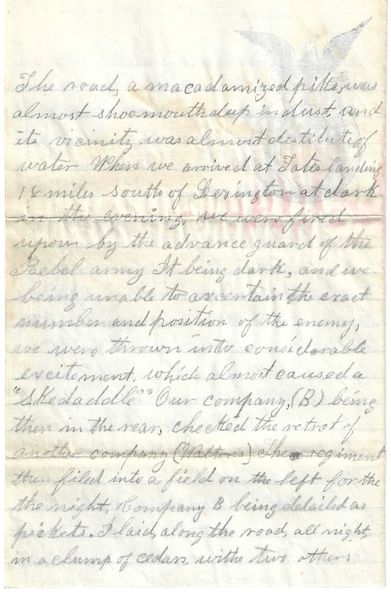 The road, a macadamized pike, was
almost shoemouth deep in dust, and
its vicinity was almost destitute of
water When we arrived at Tates landing
18 miles south of Lexington at dark
in the evening, we were fired
upon by the advance guard of the
Raebel army It being dark, and we
being unable to ascertain the exact
number and position of the enemy,
we were thrown into considerable
excitement, which almost caused a
"Skedaddle" Our company, (B) being
then in the rear, checked the retret of
another company The regiment
then filed into a field on the left for the
the night, Company B being detailed as
pickets. I laid, along the road, all night,
in a clump of cedars withe two others